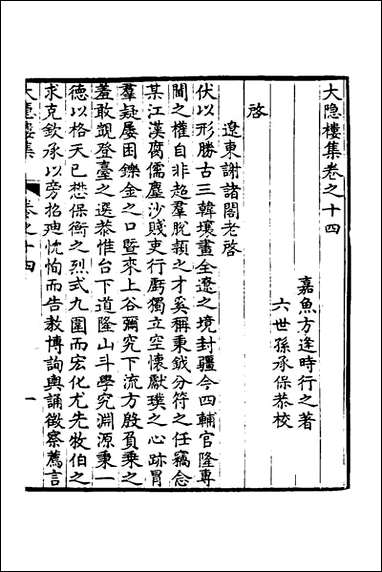 大隱樓集卷之十四
嘉魚方逢時行之著
六世孫承保恭校
啓
遼東謝諸閣老啓
伏以形勝古三韓壤畫全遼之境封疆今四輔官隆專
閫之權自非超羣脫穎之才奚稱秉鉞分符之任竊念
某江漢腐儒塵沙賤吏行虧獨立空懷獻璞之心跡冒
羣疑屢困鑠金之口暨來上谷彌究下流方殷負乗之
羞敢覬登臺之選恭惟台下道隆山斗學究淵源秉一
德以格天已懋保衡之烈式九圍而宏化尤先牧伯之
求克欽承以旁招迪忱恂而告教博詢輿誦徵察薦言
大隱樓集
卷之十四
一